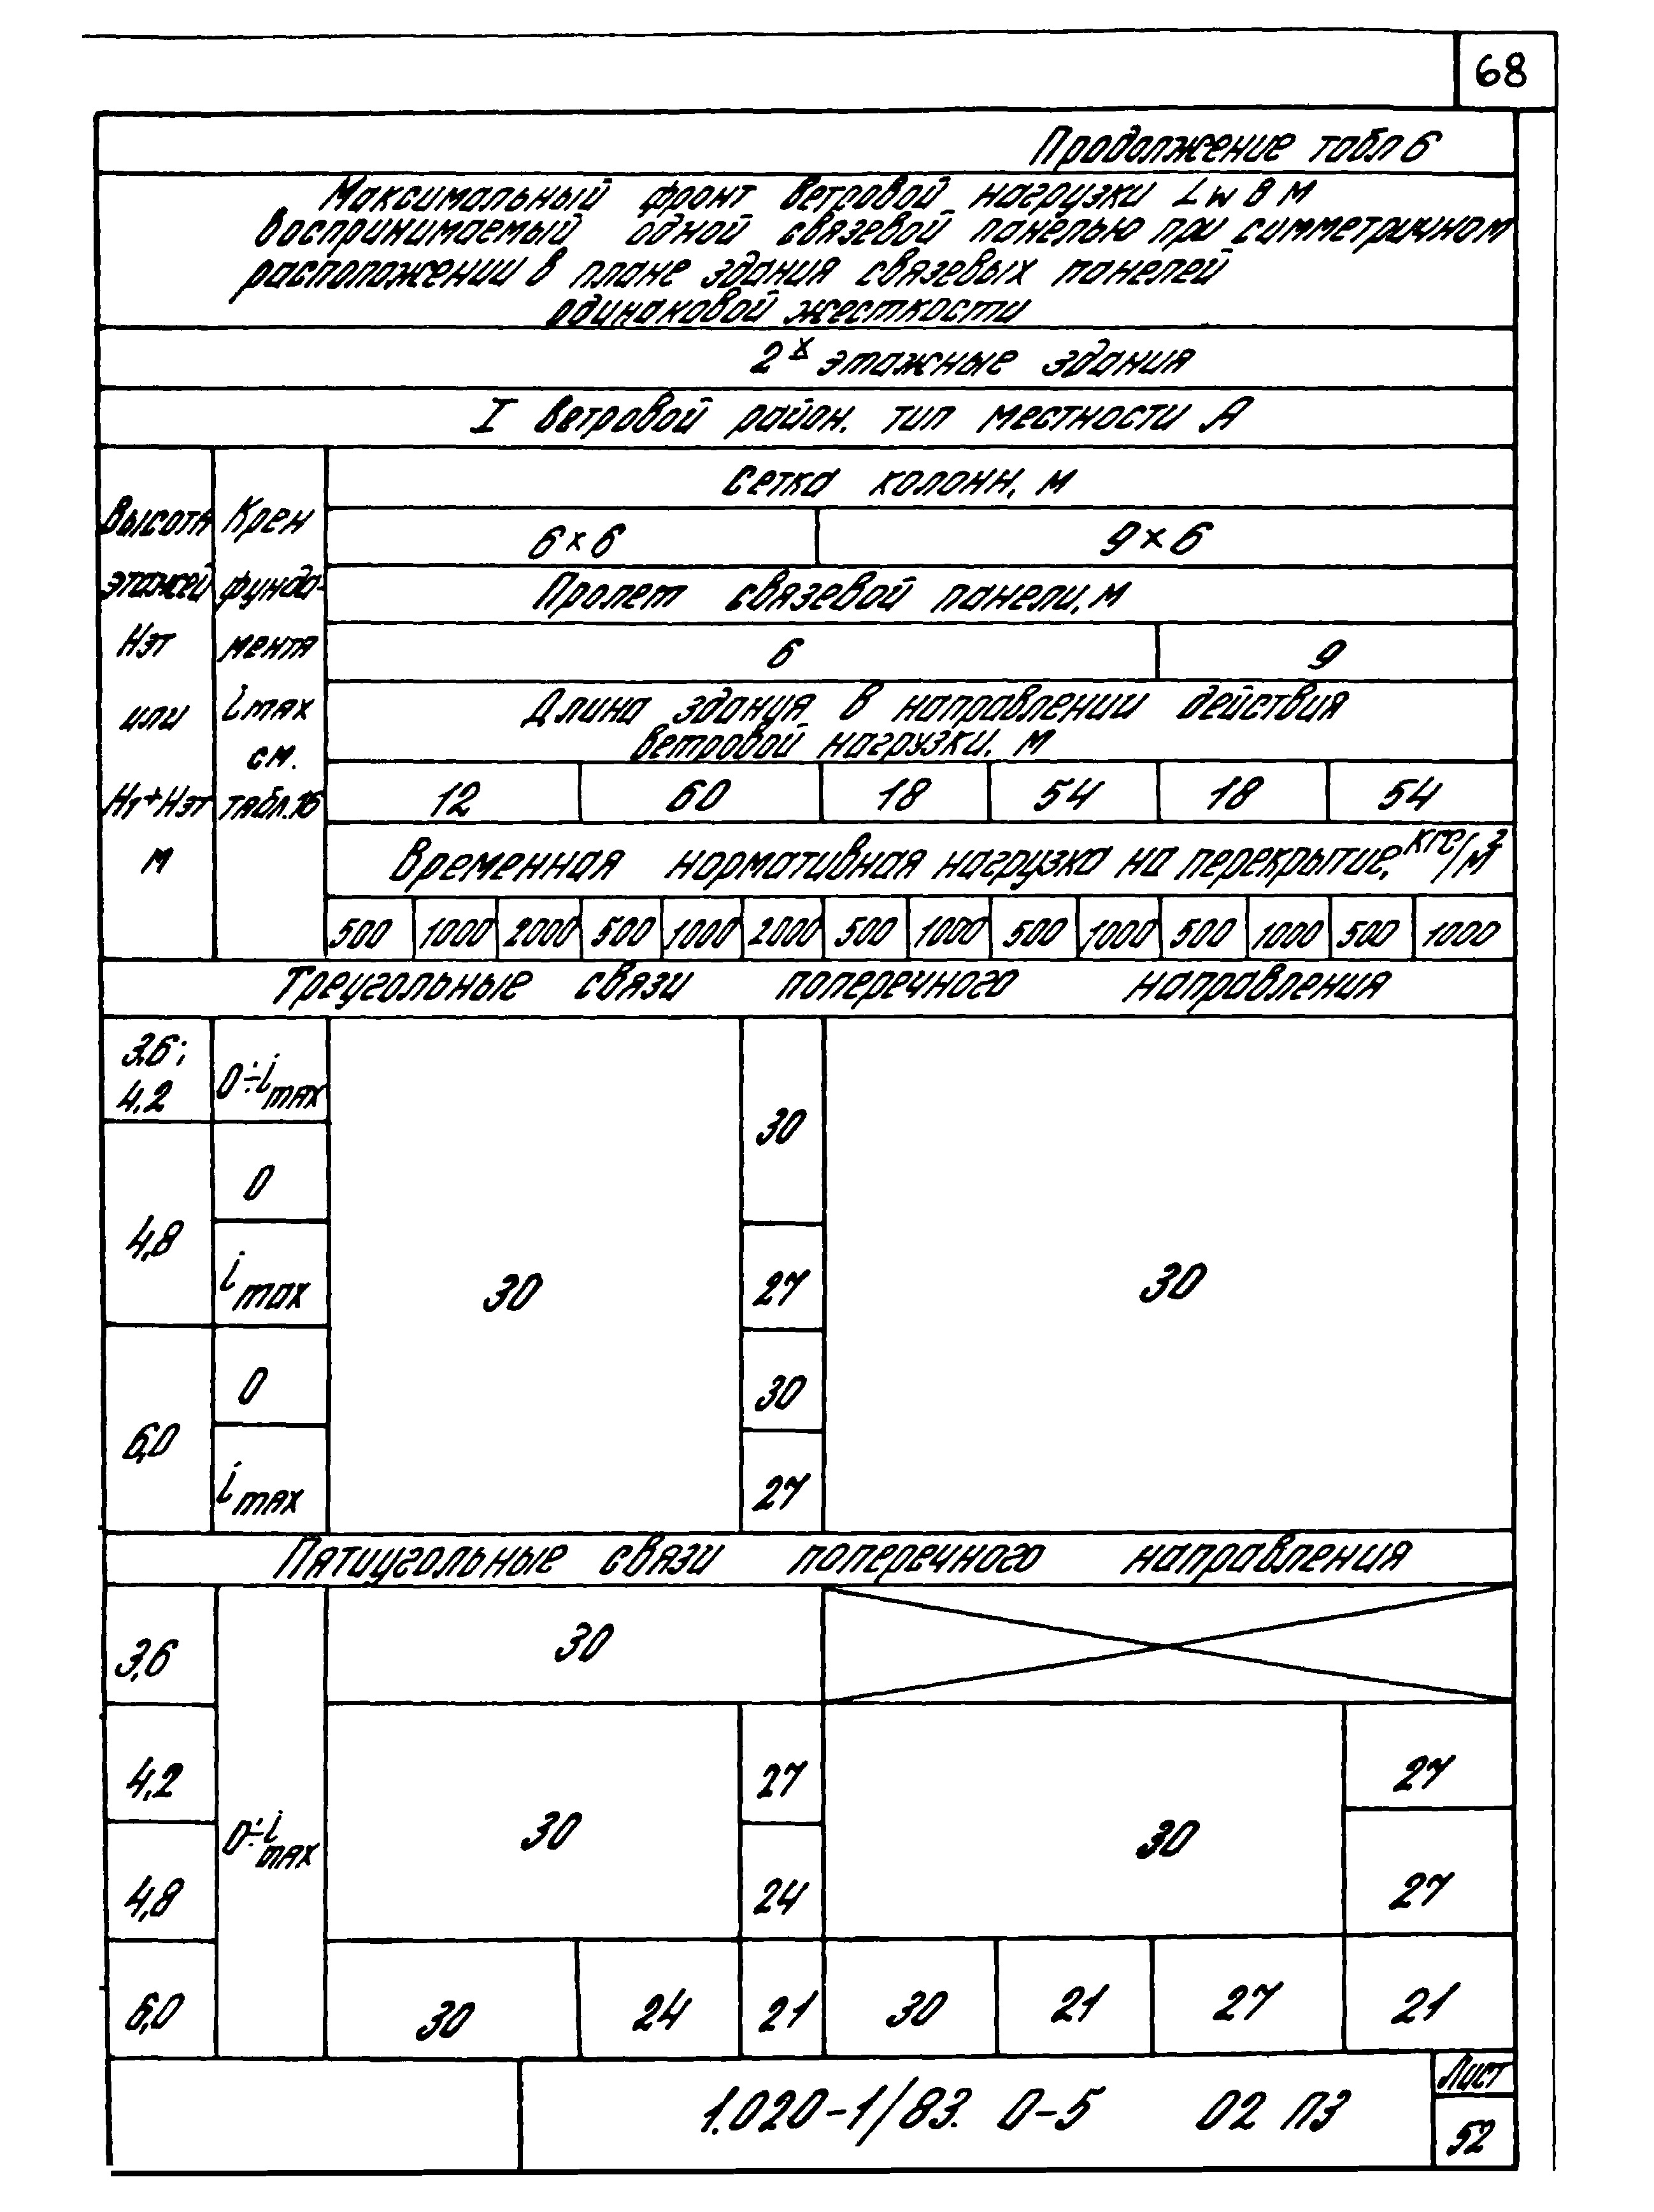 68
Продолжение табл 6
Максимальный фронт ветровой нагрузки Lw в м
воспринимаемый одной связевой панелью при симметричном
расположении в плане здания связевых панелей
одинаковой жесткости
2х этажные здания
I ветровой район. тип местности А
Высота этажей Нэт или Н1+Нэт м
Крен фунда- мента imax см. табл.16
Сетка колонн, м
6×6 9×6
Пролет связевой панели, м
6 9
Длина здания в направлении действия
ветровой нагрузки, м
12 60 18 54 18 54
Временная нормативная нагрузка на перекрытие, кгс/м²
500 1000 2000 500 1000 2000 500 1000 500 1000 500 1000 500 1000
Треугольные связи поперечного направления
3.6; 4.2 0÷imax 30 30 30
4,8 0
imax 27
6,0 0 30
imax 27
Пятиугольные связи поперечного направления
3,6 0÷imax 30
4,2 30 27 30 27
4,8 24 27
6,0 30 24 21 30 21 27 21
1.020-1/83. 0-5 02 ПЗ
Лист
52